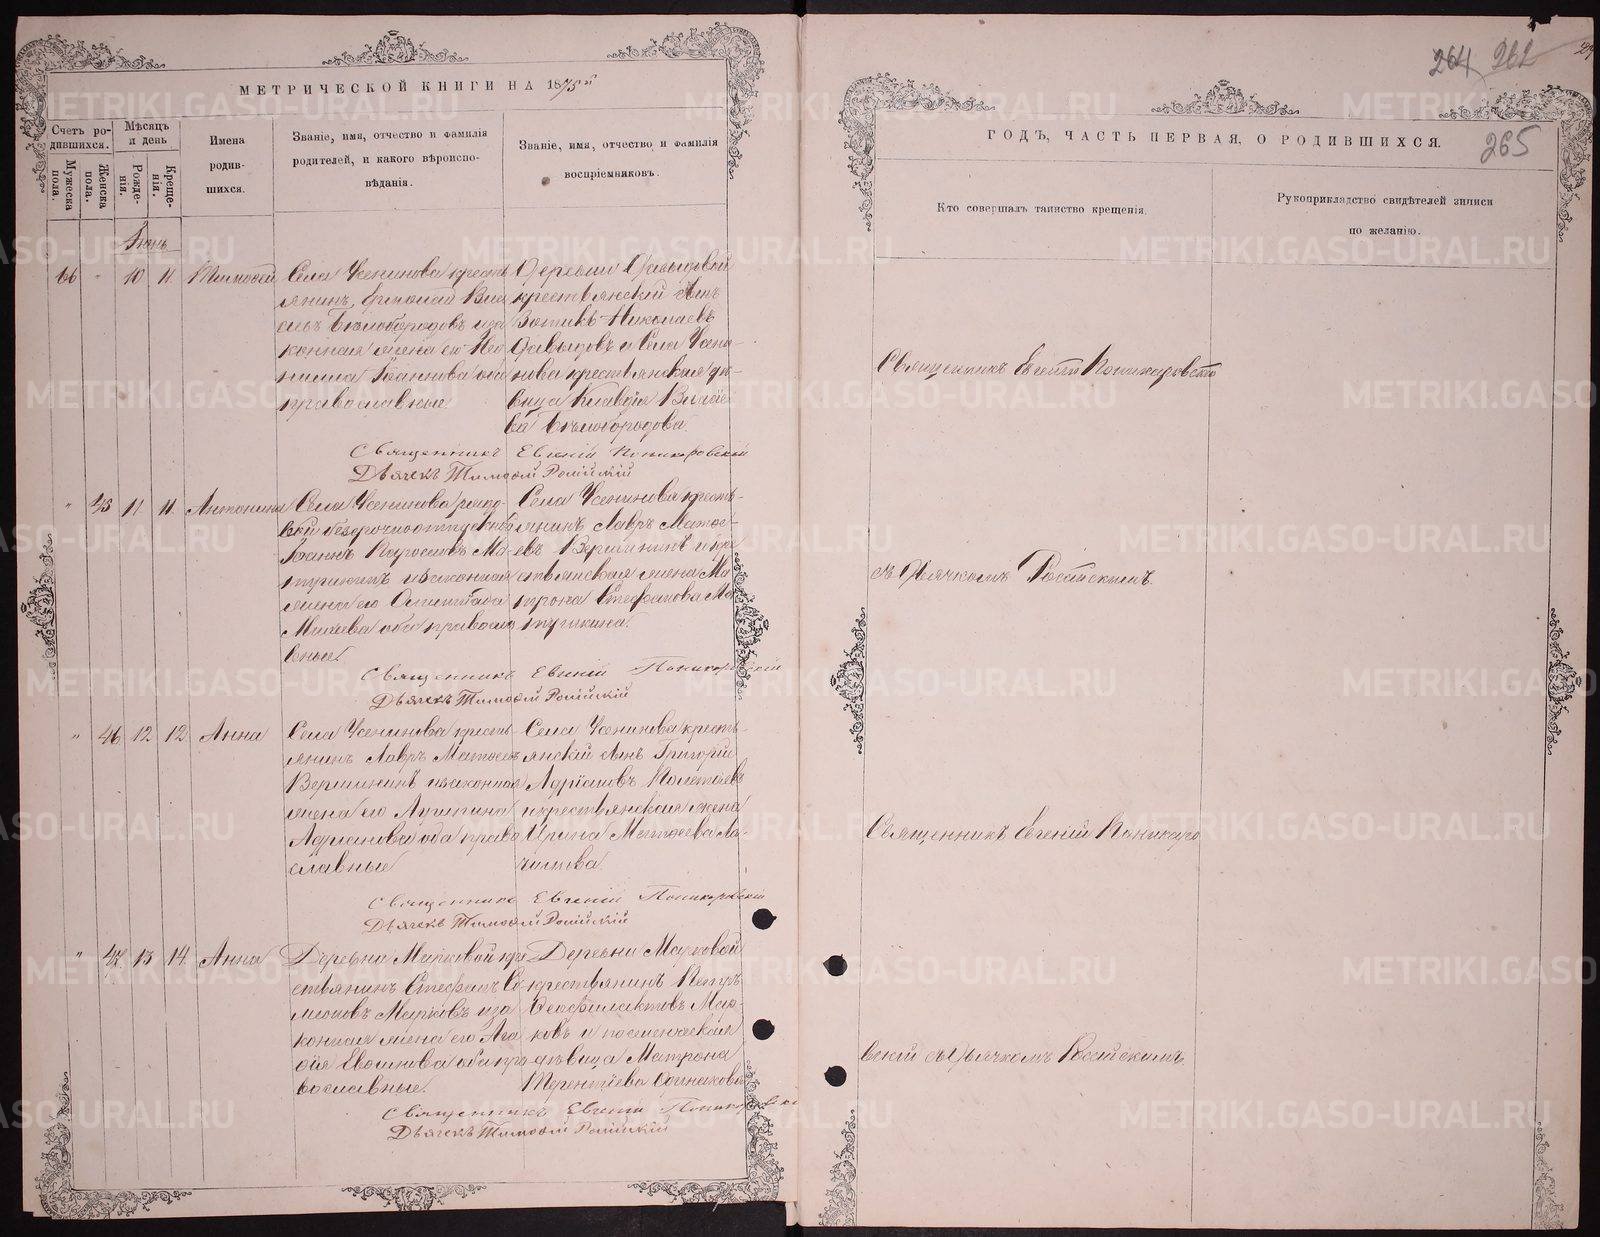 МЕТРИЧЕСКОЙ КНИГИ НА 1875й
Счетъ родившихся.
Мужеска пола.
Женска пола.
Мѣсяцъ и день
Рожденія.
Крещенія.
Имена родившихся.
Званіе, имя, отчество и фамилія родителей, и какого вѣроисповѣданія.
Званіе, имя, отчество и фамилія воспріемниковъ.
Іюнь
66 10 11 Тимоѳей
Села Усенинова кресть
янинъ, Ермолай Вла
Бѣлобородовъ и за
конная жена его Нео
нилла Іоаннова оба
православные
Деревни Давыдовой
крестьянскій сынъ
Вотикъ Николаевъ
Давыдовъ и Села Усени-
нова крестьянская дѣ-
вица Клавдія Власіе-
ва Бѣлобородова.
Священникъ Евгеній Поникаровскій
Дьячекъ Тимоѳей Россійскій
" 45 11 11 Антонина
Села Усенинова рядо-
вой безсрочноотпускной
Іоаннъ Ма-
и законная
жена его
Михеева оба правосла
вные.
Села Усенинова кресть-
янинъ Лавръ Матѳе-
евъ Вершининъ и кре
стьянская жена Ма
трона Стефанова Ма
Священникъ Евгеній Поникаровскій
Дьячекъ Тимоѳей Россійскій
" 46 12 12 Анна
Села Усенинова кресть
янинъ Лавръ Матѳеевъ
Вершининъ и законная
жена его
Адріанова оба право
славные
Села Усенинова кресть-
янскій сынъ Григорій
Адріановъ Полетаевъ
и крестьянская жена
Ирина Матѳеева Ла-
Священникъ Евгеній Поникаровскій
Дьячекъ Тимоѳей Россійскій
" 47 13 14 Анна
Деревни Марковой кре
стьянинъ Стефанъ Си
меоновъ Марковъ и за
конная жена его Ага
ѳія оба пра
вославные.
Деревни Марковой
крестьянинъ Петръ
Ѳеофилактовъ Мар-
ковъ и
дѣвица Матрона
Терентіева
Священникъ Евгеній Поникаровскій
Дьячекъ Тимоѳей Россійскій
264 262
265
ГОДЪ, ЧАСТЬ ПЕРВАЯ, О РОДИВШИХСЯ.
Кто совершалъ таинство крещенія.
Рукоприкладство свидѣтелей записи по желанію.
Священникъ Евгеній Поникаровскій
съ Дьячкомъ Россійскимъ.
Священникъ Евгеній Поникаро
вскій съ Дьячкомъ Россійскимъ
METRIKI.GASO-URAL.RU